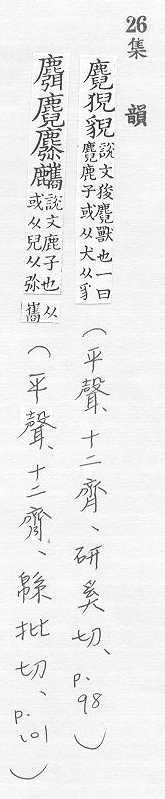 26
集韻
麑猊貎
說文後麑獸也一曰
麑鹿子或从犬从豸
（平聲、十二齊、研奚切、p.98）
麛麑
說文鹿子也
或从兒从弥
从
巂
（平聲、十二齊、緜批切、p.101）